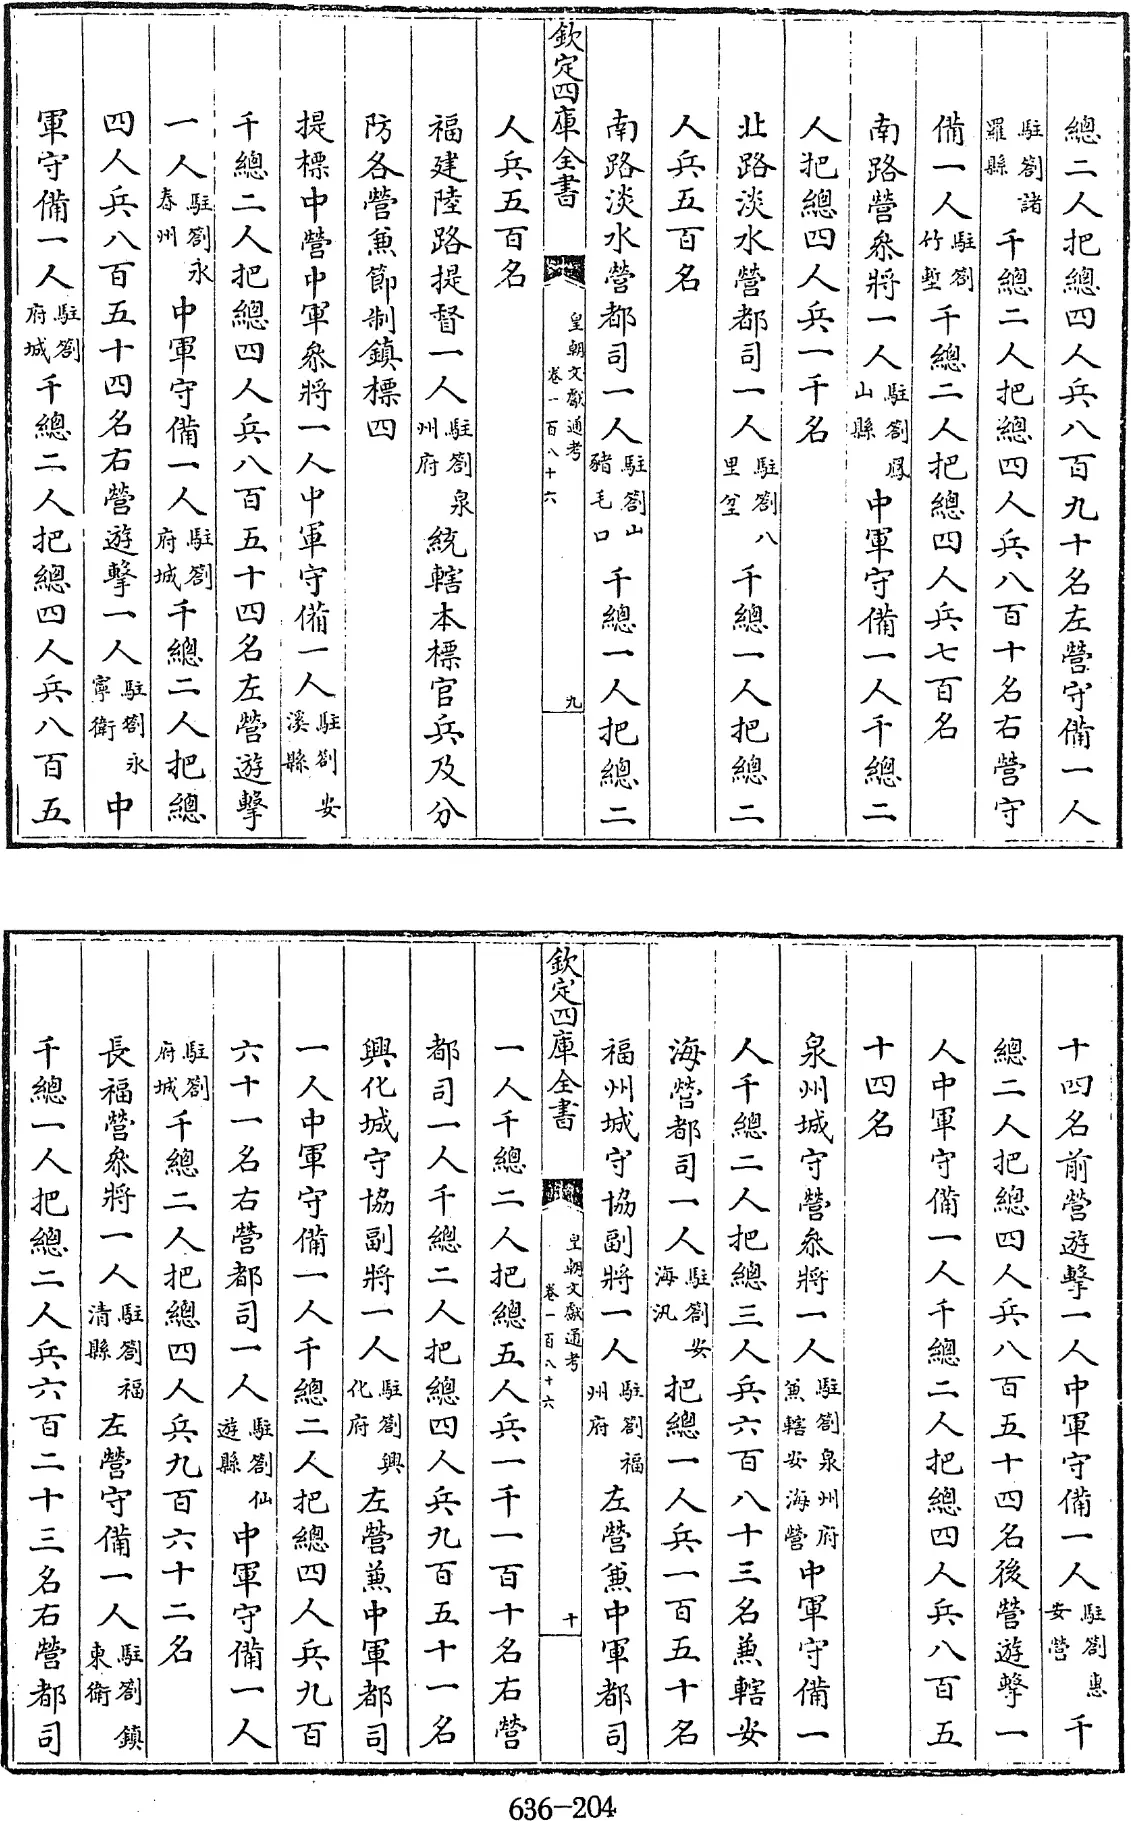 總二人把總四人兵八百九十名左營守備一人
駐劄諸羅縣千總二人把總四人兵八百十名右營守
備一人駐劄竹塹千總二人把總四人兵七百名
南路營叅將一人駐劄鳳山縣中軍守備一人千總二
人把總四人兵一千名
北路淡水營都司一人駐劄八里坌千總一人把總二
人兵五百名
南路淡水營都司一人駐劄山豬毛口千總一人把總二
欽定四庫全書
皇朝文獻通考
卷一百八十六
九
人兵五百名
福建陸路提督一人駐劄泉州府統轄本標官兵及分
防各營兼節制鎮標四
提標中營中軍叅將一人中軍守備一人駐劄安溪縣
千總二人把總四人兵八百五十四名左營遊擊
一人駐劄永春州中軍守備一人駐劄府城千總二人把總
四人兵八百五十四名右營遊擊一人駐劄永寧衛中
軍守備一人駐劄府城千總二人把總四人兵八百五
十四名前營遊擊一人中軍守備一人駐劄惠安營千
總二人把總四人兵八百五十四名後營遊擊一
人中軍守備一人千總二人把總四人兵八百五
十四名
泉州城守營叅將一人駐劄泉州府兼轄安海營中軍守備一
人千總二人把總三人兵六百八十三名兼轄安
海營都司一人駐劄安海汛把總一人兵一百五十名
福州城守協副將一人駐劄福州府左營兼中軍都司
欽定四庫全書
皇朝文獻通考
卷一百八十六
十
一人千總二人把總五人兵一千一百十名右營
都司一人千總二人把總四人兵九百五十一名
興化城守協副將一人駐劄興化府左營兼中軍都司
一人中軍守備一人千總二人把總四人兵九百
六十一名右營都司一人駐劄仙遊縣中軍守備一人
駐劄府城千總二人把總四人兵九百六十二名
長福營叅將一人駐劄福清縣左營守備一人駐劄鎮東衛
千總一人把總二人兵六百二十三名右營都司
636-204